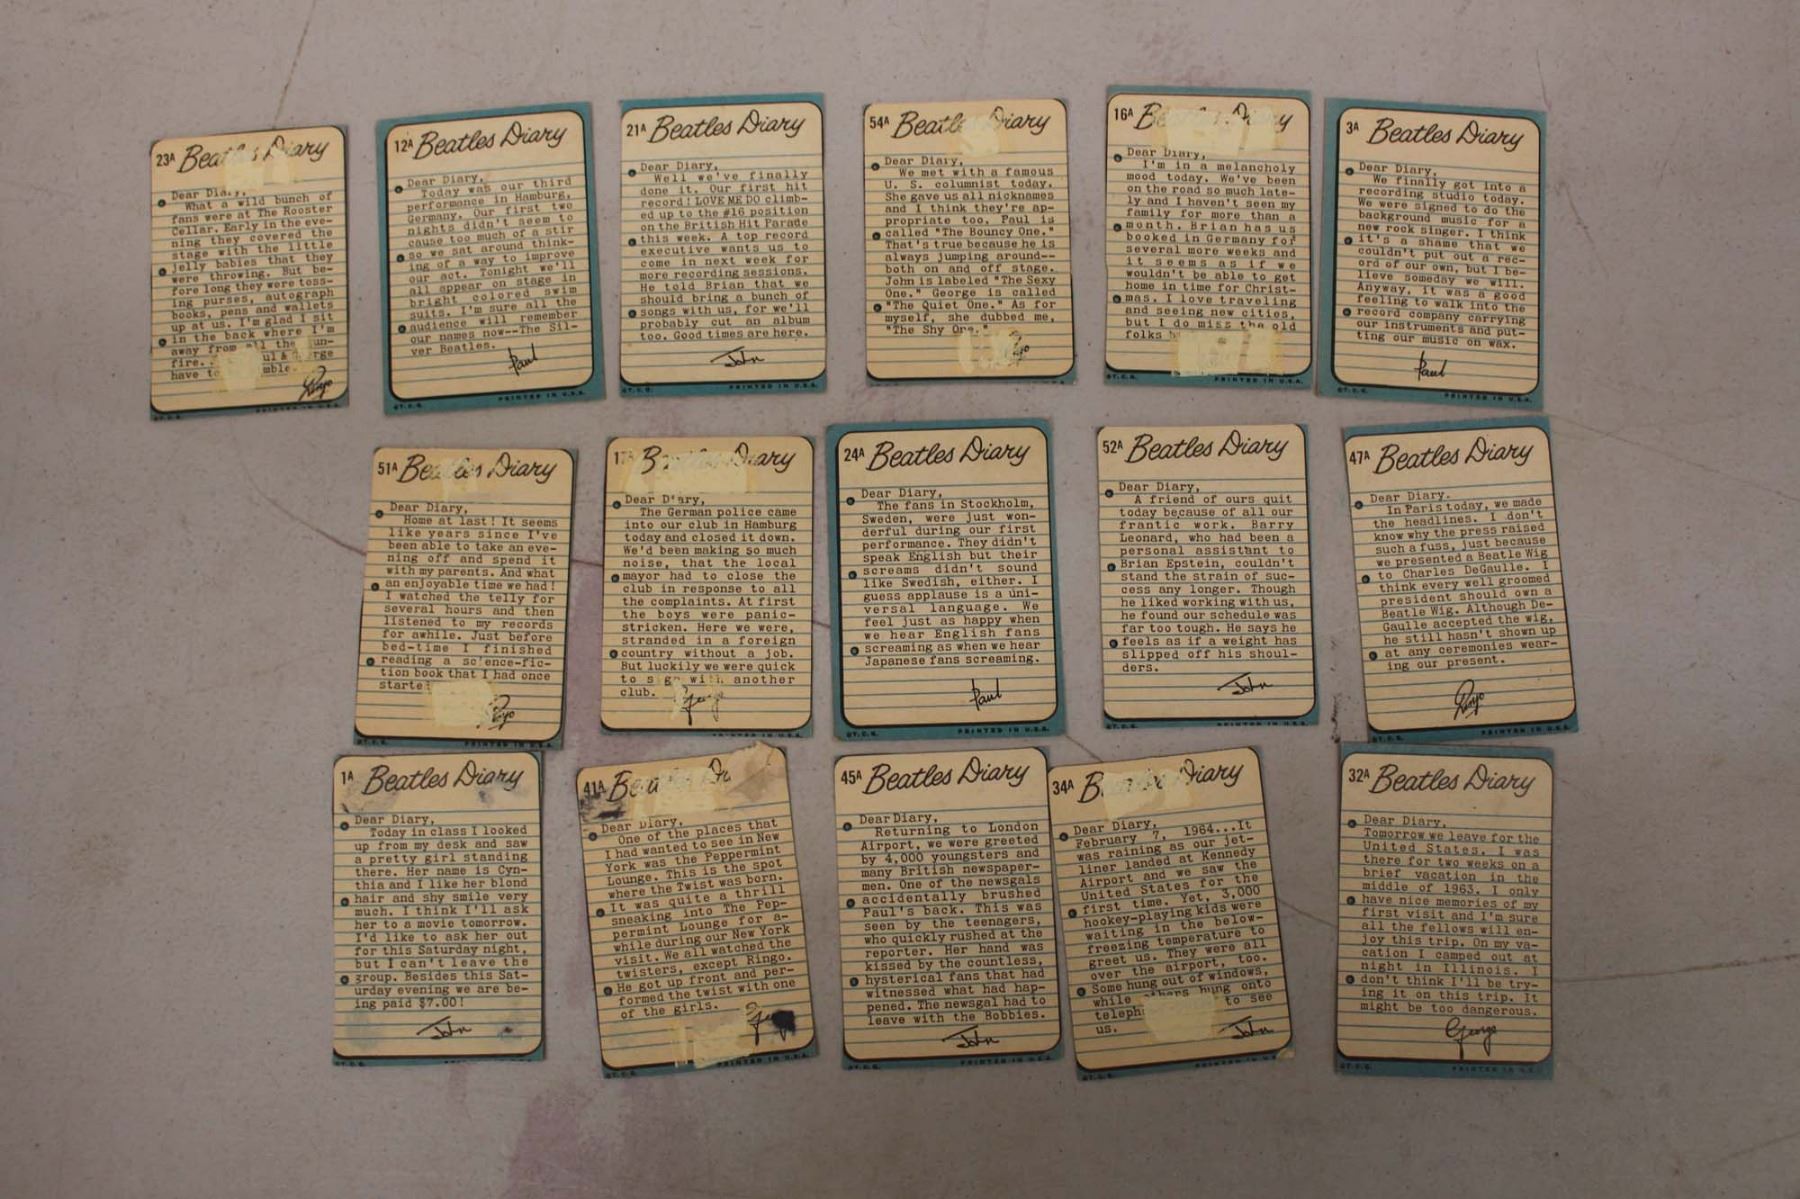 23A
Dear Dia
What a wild bunch of
fans were at The Rooster
Cellar. Early in the eve-
ning they covered the
stage with the little
jelly babies that they
were throwing. But be-
fore long they were toss-
ing purses, autograph
books, pens and wallets
up at us. I'm glad I sit
in the back where I'm
away from
fire..
have
Ringo
12A Beatles Diary
Dear Diary,
Today was our third
performance in Hamburg,
Germany. Our first two
nights didn't seem to
cause too much of a stir
so we sat around think-
ing of a way to improve
our act. Tonight we'll
all appear on stage in
bright colored swim
suits. I'm sure all the
audience will remember
our names now--The Sil-
ver Beatles.
Paul
PRINTED IN U.S.A.
21A Beatles Diary
Dear Diary,
Well we've finally
done it. Our first hit
record! LOVE ME DO climb-
ed up to the #16 position
on the British Hit Parade
this week. A top record
executive wants us to
come in next week for
more recording sessions.
He told Brian that we
should bring a bunch of
songs with us, for we'll
probably cut an album
too. Good times are here.
John
PRINTED IN U.S.A.
54A
Dear Diary,
We met with a famous
U. S. columnist today.
She gave us all nicknames
and I think they're ap-
propriate too. Paul is
called "The Bouncy One."
That's true because he is
always jumping around--
both on and off stage.
John is labeled "The Sexy
One." George is called
"The Quiet One." As for
myself, she dubbed me,
"The Shy One."
16A
Dear Diary,
I'm in a melancholy
mood today. We've been
on the road so much late-
ly and I haven't seen my
family for more than a
month. Brian has us
booked in Germany for
several more weeks and
it seems as if we
wouldn't be able to get
home in time for Christ-
mas. I love traveling
and seeing new cities,
but I do miss the old
folks
PRINTED IN U.S.A.
3A Beatles Diary
Dear Diary,
We finally got into a
recording studio today.
We were signed to do the
background music for a
new rock singer. I think
it's a shame that we
couldn't put out a rec-
ord of our own, but I be-
lieve someday we will.
Anyway, it was a good
feeling to walk into the
record company carrying
our instruments and put-
ting our music on wax.
Paul
PRINTED IN U.S.A.
51A
Dear Diary,
Home at last! It seems
like years since I've
been able to take an eve-
ning off and spend it
with my parents. And what
an enjoyable time we had!
I watched the telly for
several hours and then
listened to my records
for awhile. Just before
bed-time I finished
reading a science-fic-
tion book that I had once
starte
17A
Dear Diary,
The German police came
into our club in Hamburg
today and closed it down.
We'd been making so much
noise, that the local
mayor had to close the
club in response to all
the complaints. At first
the boys were panic-
stricken. Here we were,
stranded in a foreign
country without a job.
But luckily we were quick
to sign with another
club.
George
24A Beatles Diary
Dear Diary,
The fans in Stockholm,
Sweden, were just won-
derful during our first
performance. They didn't
speak English but their
screams didn't sound
like Swedish, either. I
guess applause is a uni-
versal language. We
feel just as happy when
we hear English fans
screaming as when we hear
Japanese fans screaming.
Paul
PRINTED IN U.S.A.
52A Beatles Diary
Dear Diary,
A friend of ours quit
today because of all our
frantic work. Barry
Leonard, who had been a
personal assistant to
Brian Epstein, couldn't
stand the strain of suc-
cess any longer. Though
he liked working with us,
he found our schedule was
far too tough. He says he
feels as if a weight has
slipped off his shoul-
ders.
John
47A Beatles Diary
Dear Diary.
In Paris today, we made
the headlines. I don't
know why the press raised
such a fuss, just because
we presented a Beatle Wig
to Charles DeGaulle. I
think every well groomed
president should own a
Beatle Wig. Although De-
Gaulle accepted the wig,
he still hasn't shown up
at any ceremonies wear-
ing our present.
Ringo
1A Beatles Diary
Dear Diary,
Today in class I looked
up from my desk and saw
a pretty girl standing
there. Her name is Cyn-
thia and I like her blond
hair and shy smile very
much. I think I'll ask
her to a movie tomorrow.
I'd like to ask her out
for this Saturday night,
but I can't leave the
group. Besides this Sat-
urday evening we are be-
ing paid $7.00!
John
41A
Dear Diary,
One of the places that
I had wanted to see in New
York was the Peppermint
Lounge. This is the spot
where the Twist was born.
It was quite a thrill
sneaking into The Pep-
permint Lounge for a-
while during our New York
visit. We all watched the
twisters, except Ringo.
He got up front and per-
formed the twist with one
of the girls.
45A Beatles Diary
Dear Diary,
Returning to London
Airport, we were greeted
by 4,000 youngsters and
many British newspaper-
men. One of the newsgals
accidentally brushed
Paul's back. This was
seen by the teenagers,
who quickly rushed at the
reporter. Her hand was
kissed by the countless,
hysterical fans that had
witnessed what had hap-
pened. The newsgal had to
leave with the Bobbies.
John
34A
Dear Diary,
February 7, 1964...It
was raining as our jet-
liner landed at Kennedy
Airport and we saw the
United States for the
first time. Yet, 3,000
hookey-playing kids were
waiting in the below-
freezing temperature to
greet us. They were all
over the airport, too.
Some hung out of windows,
while others hung onto
teleph to see
us.
John
32A Beatles Diary
Dear Diary,
Tomorrow we leave for the
United States. I was
there for two weeks on a
brief vacation in the
middle of 1963. I only
have nice memories of my
first visit and I'm sure
all the fellows will en-
joy this trip. On my va-
cation I camped out at
night in Illinois. I
don't think I'll be try-
ing it on this trip. It
might be too dangerous.
George